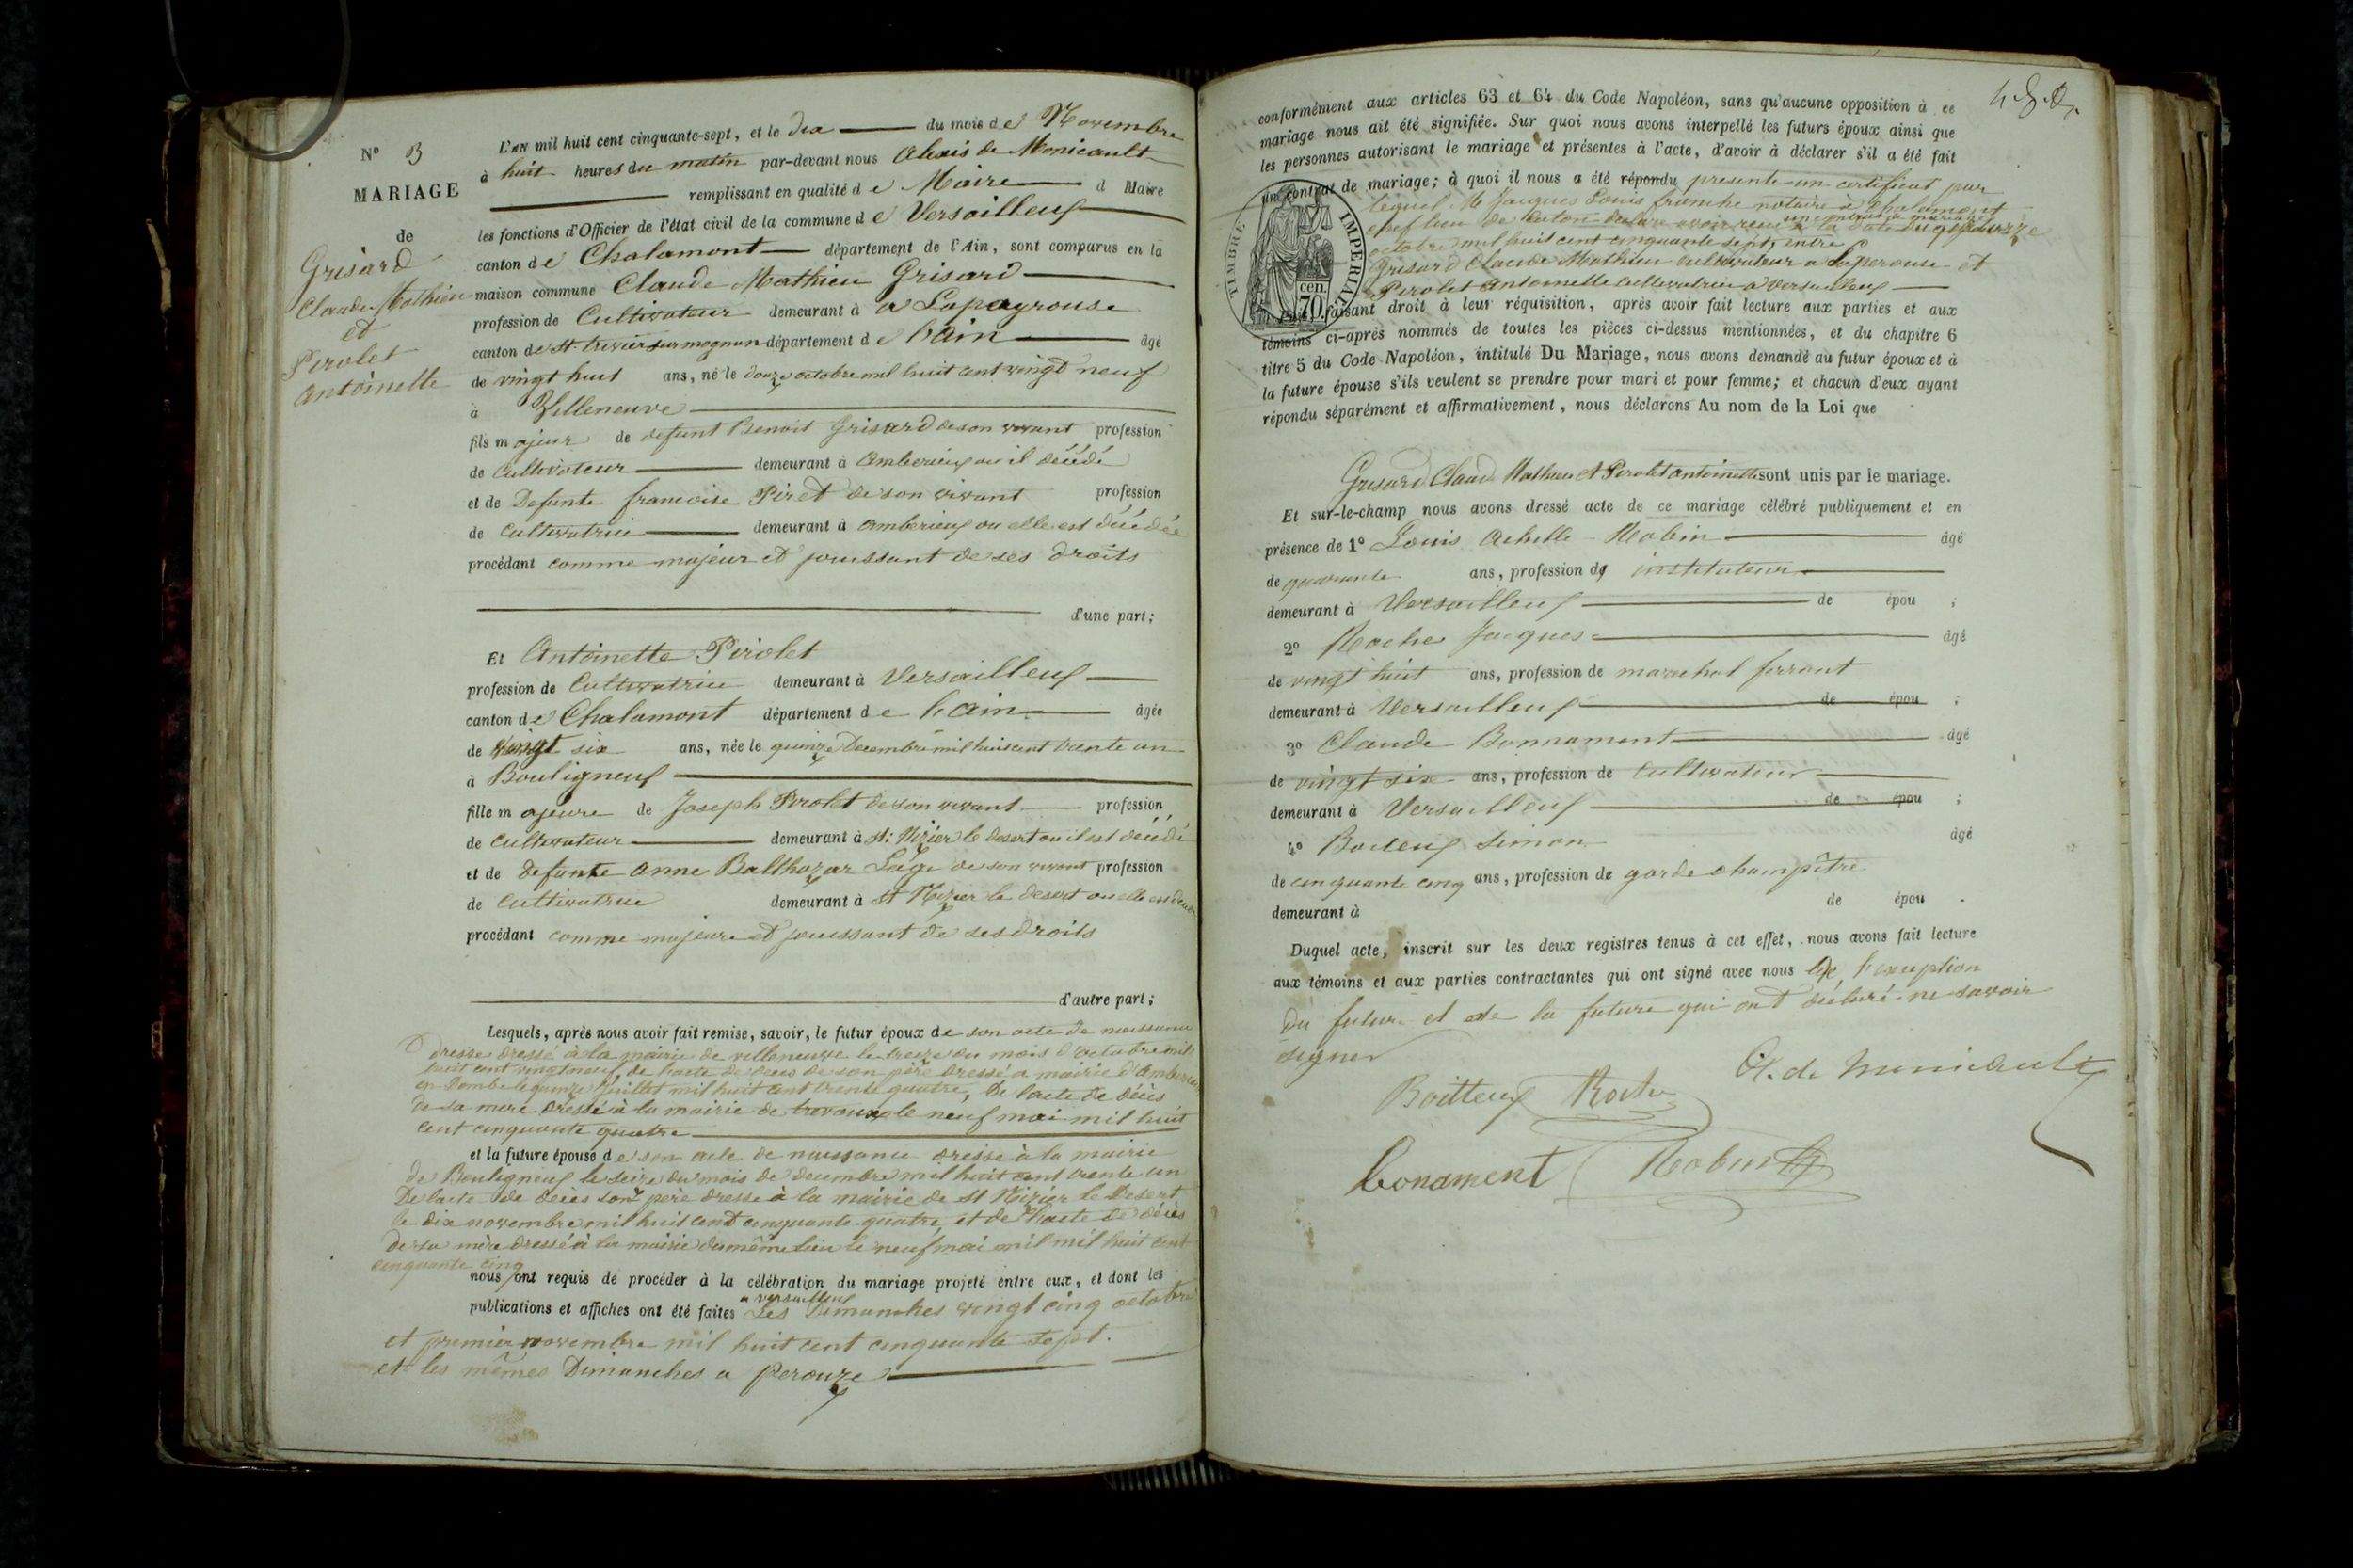 N° 3
MARIAGE
de
Grisard
Claude Mathieu
et
Pirolet
antoinette
L'AN mil huit cent cinquante-sept, et le dix du mois de Novembre
à huit heures du matin par-devant nous Alexis de Monicault
remplissant en qualité de Maire d Maire
les fonctions d'Officier de l'état civil de la commune de Versailleux
canton de Chalamont département de l'Ain, sont comparus en la
maison commune Claude Mathieu Grisard
profession de Cultivateur demeurant à a Lapeyrouse
canton de st. trivier sur mognan département de l'ain âgé
de vingt huit ans, né le douze octobre mil huit cent vingt neuf
à Villeneuve
fils majeur de defunt Benoit Grisard de son vivant profession
de Cultivateur demeurant à Amberieux ou il décédé
et de Defunte francoise Piret de son vivant profession
de Cultivatrice demeurant à amberieux ou elle est décédée
procédant comme majeur et jouissant de ses droits
d'une part;
Et Antoinette Pirolet
profession de Cultivatrice demeurant à Versailleux
canton de Chalamont département de l'ain âgée
de vingt six ans, née le quinze Decembre mil huit cent trente un
à Bouligneux
fille majeure de Joseph Pirolet de son vivant profession
de Cultivateur demeurant à st: Nizier le desert ou il est décédé
et de defunte anne Balthazar Lage de son vivant profession
de Cultivatrice demeurant à st Nizier le desert ou elle est
procédant comme majeure et jouissant de ses droits
d'autre part;
Lesquels, après nous avoir fait remise, savoir, le futur époux de son acte de naissance
dressé à la mairie de villeneuve le treize du mois d'octobre mil
huit cent vingt neuf, de l'acte de deces de son père dressé a mairie d'amberieux
en Dombe le quinze Juillet mil huit cent trente quatre, De l'acte de décès
de sa mere dressé à la mairie de trevoux le neuf mai mil huit
cent cinquante quatre
et la future épouse de son acte de naissance dressé à la mairie
de Bouligneux le seize du mois de decembre mil huit cent trente un
De l'acte de décès son père dressé à la mairie de St Nizier le Desert
le dix novembre mil huit cent cinquante quatre, et de l'acte de décès
de sa mère dressé à la mairie du même lieu le neuf mai mil mil huit cent
cinquante cinq
nous ont requis de procéder à la célébration du mariage projeté entre eux, et dont les
a versailleux
publications et affiches ont été faites Les Dimanches vingt cinq octobre
et premier novembre mil huit cent cinquante sept.
et les mêmes Dimanches a perouze
conformément aux articles 63 et 64 du Code Napoléon, sans qu'aucune opposition à ce
mariage nous ait été signifiée. Sur quoi nous avons interpellé les futurs époux ainsi que
les personnes autorisant le mariage et présentes à l'acte, d'avoir à déclarer s'il a été fait
un contrat de mariage; à quoi il nous a été répondu presente un certificat par
lequel Me Jacques Louis franche notaire a Chalamont
un contrat de mariage
chef lieu de Canton declare avoir recu à la date du quatorze
octobre mil huit cent cinquante sept, entre
Grisard Claude Mathieu cultivateur a Laperouse et
Pirolet Antoinette cultivatrice a Versailleux
TIMBRE IMPÉRIAL
70 cen.
faisant droit à leur réquisition, après avoir fait lecture aux parties et aux
témoins ci-après nommés de toutes les pièces ci-dessus mentionnées, et du chapitre 6
titre 5 du Code Napoléon, intitulé Du Mariage, nous avons demandé au futur époux et à
la future épouse s'ils veulent se prendre pour mari et pour femme; et chacun d'eux ayant
répondu séparément et affirmativement, nous déclarons Au nom de la Loi que
Grisard Claude Mathieu et Pirolet antoinette sont unis par le mariage.
Et sur-le-champ nous avons dressé acte de ce mariage célébré publiquement et en
présence de 1° Louis Achille Robin âgé
de quarante ans, profession de instituteur
demeurant à Versailleux de épou ;
2° Roche Jacques âgé
de vingt huit ans, profession de marechal ferrant
demeurant à Versailleux de épou ;
3° Claude Bonnament âgé
de vingt six ans, profession de cultivateur
demeurant à Versailleux de épou ;
4° Boiteux Simon âgé
de cinquante cinq ans, profession de garde champêtre
demeurant à de épou .
Duquel acte, inscrit sur les deux registres tenus à cet effet, nous avons fait lecture
aux témoins et aux parties contractantes qui ont signé avec nous à l'exception
du futur et de la future qui ont déclaré ne savoir
signer
Al. de Monicault
Boitteux Roche
Bonament Robin